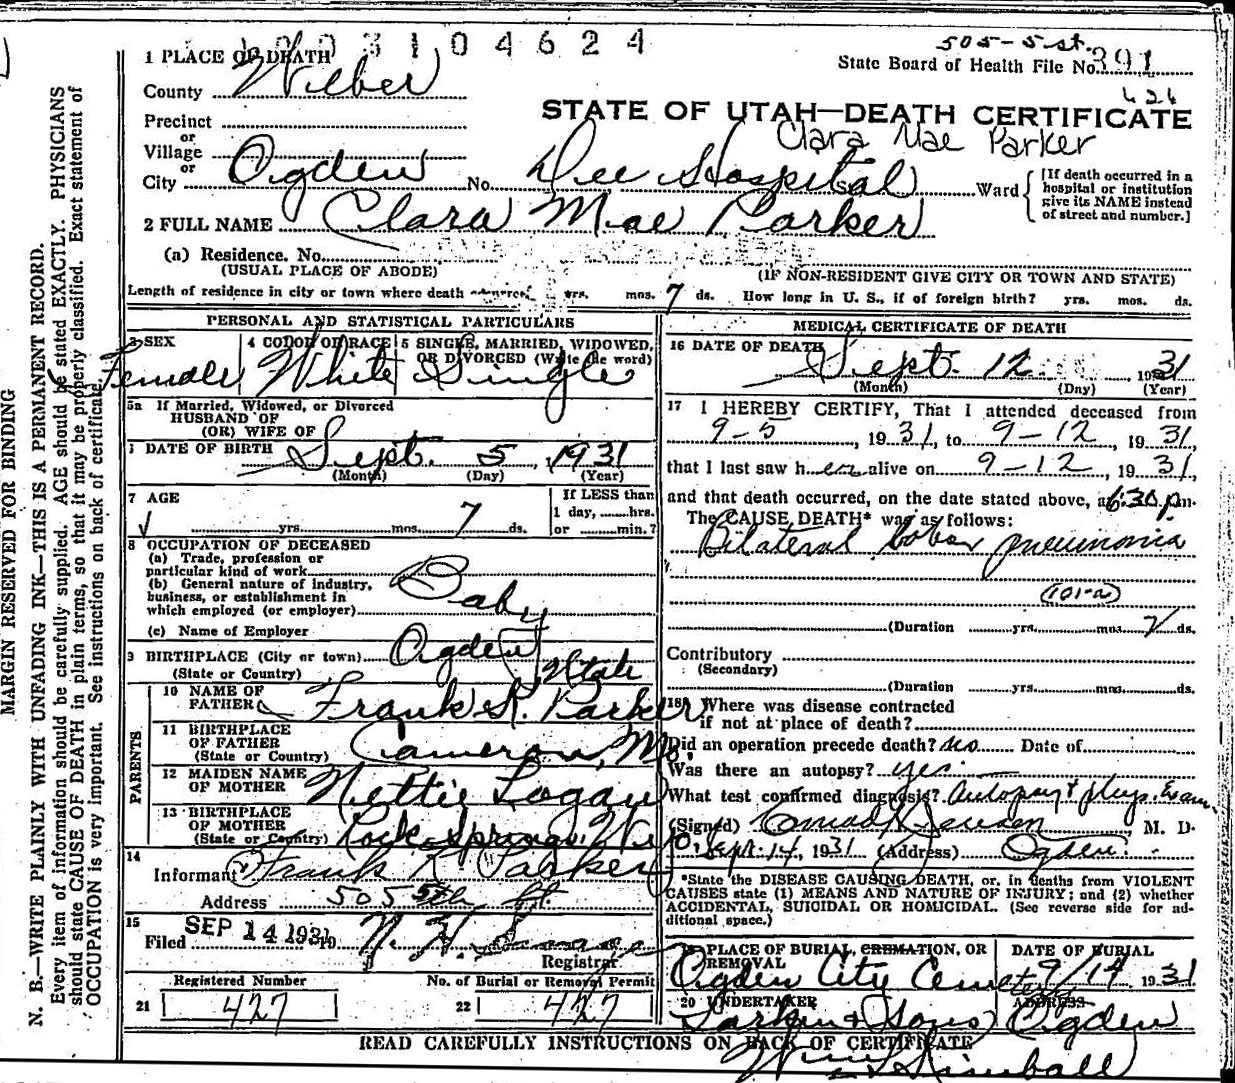 0 0 3 1 0 4 6 2 4
505-5 st.
1 PLACE OF DEATH
State Board of Health File No. 391
County Weber
626
STATE OF UTAH—DEATH CERTIFICATE
Precinct
Clara Mae Parker
or
Village
or
City Ogden No. Dee Hospital Ward
[If death occurred in a hospital or institution give its NAME instead of street and number.]
2 FULL NAME Clara Mae Parker
(a) Residence. No.
(USUAL PLACE OF ABODE) (IF NON-RESIDENT GIVE CITY OR TOWN AND STATE)
Length of residence in city or town where death occurred yrs. mos. 7 ds. How long in U. S., if of foreign birth? yrs. mos. ds.
PERSONAL AND STATISTICAL PARTICULARS
3 SEX Female
4 COLOR OR RACE White
5 SINGLE, MARRIED, WIDOWED, OR DIVORCED (Write the word) Single
5a If Married, Widowed, or Divorced
HUSBAND OF
(OR) WIFE OF
DATE OF BIRTH Sept. 5, 1931
(Month) (Day) (Year)
7 AGE
yrs. mos. 7 ds.
If LESS than
1 day, hrs.
or min.?
8 OCCUPATION OF DECEASED
(a) Trade, profession or
particular kind of work
(b) General nature of industry,
business, or establishment in
which employed (or employer)
Baby
(c) Name of Employer
9 BIRTHPLACE (City or town) Ogden
(State or Country) Utah
PARENTS
10 NAME OF FATHER Frank R. Parker
11 BIRTHPLACE OF FATHER (State or Country) Cameron, Mo.
12 MAIDEN NAME OF MOTHER Nettie Logan
13 BIRTHPLACE OF MOTHER (State or Country) Rock Springs, Wyo.
14
Informant Frank R. Parker
Address 505 5th St.
15
Filed SEP 14 1931 19
Registrar
Registered Number No. of Burial or Removal Permit
21 427 22 427
MEDICAL CERTIFICATE OF DEATH
16 DATE OF DEATH Sept. 12 1931
(Month) (Day) (Year)
17 I HEREBY CERTIFY, That I attended deceased from
9-5, 1931, to 9-12 1931,
that I last saw her alive on 9-12, 1931,
and that death occurred, on the date stated above, at 630 p.m.
The CAUSE DEATH* was as follows:
Bilateral lobar pneumonia
(101-a)
(Duration yrs. mos. 7 ds.
Contributory
(Secondary)
(Duration yrs. mos. ds.
18 Where was disease contracted
if not at place of death?
Did an operation precede death? no Date of
Was there an autopsy? yes.
What test confirmed diagnosis? Autopsy & phys. Exam.
(Signed) Conrad Jensen, M. D.
Sept. 14, 1931 (Address) Ogden
*State the DISEASE CAUSING DEATH, or, in deaths from VIOLENT
CAUSES state (1) MEANS AND NATURE OF INJURY; and (2) whether
ACCIDENTAL, SUICIDAL OR HOMICIDAL. (See reverse side for ad-
ditional space.)
PLACE OF BURIAL, CREMATION, OR REMOVAL DATE OF BURIAL
Ogden City Cemetery 9/14 1931
20 UNDERTAKER ADDRESS
Larkin & Sons Ogden
READ CAREFULLY INSTRUCTIONS ON BACK OF CERTIFICATE
Kimball
MARGIN RESERVED FOR BINDING
N. B.—WRITE PLAINLY WITH UNFADING INK—THIS IS A PERMANENT RECORD.
Every item of information should be carefully supplied. AGE should be stated EXACTLY. PHYSICIANS
should state CAUSE OF DEATH in plain terms, so that it may be properly classified. Exact statement of
OCCUPATION is very important. See instructions on back of certificate.